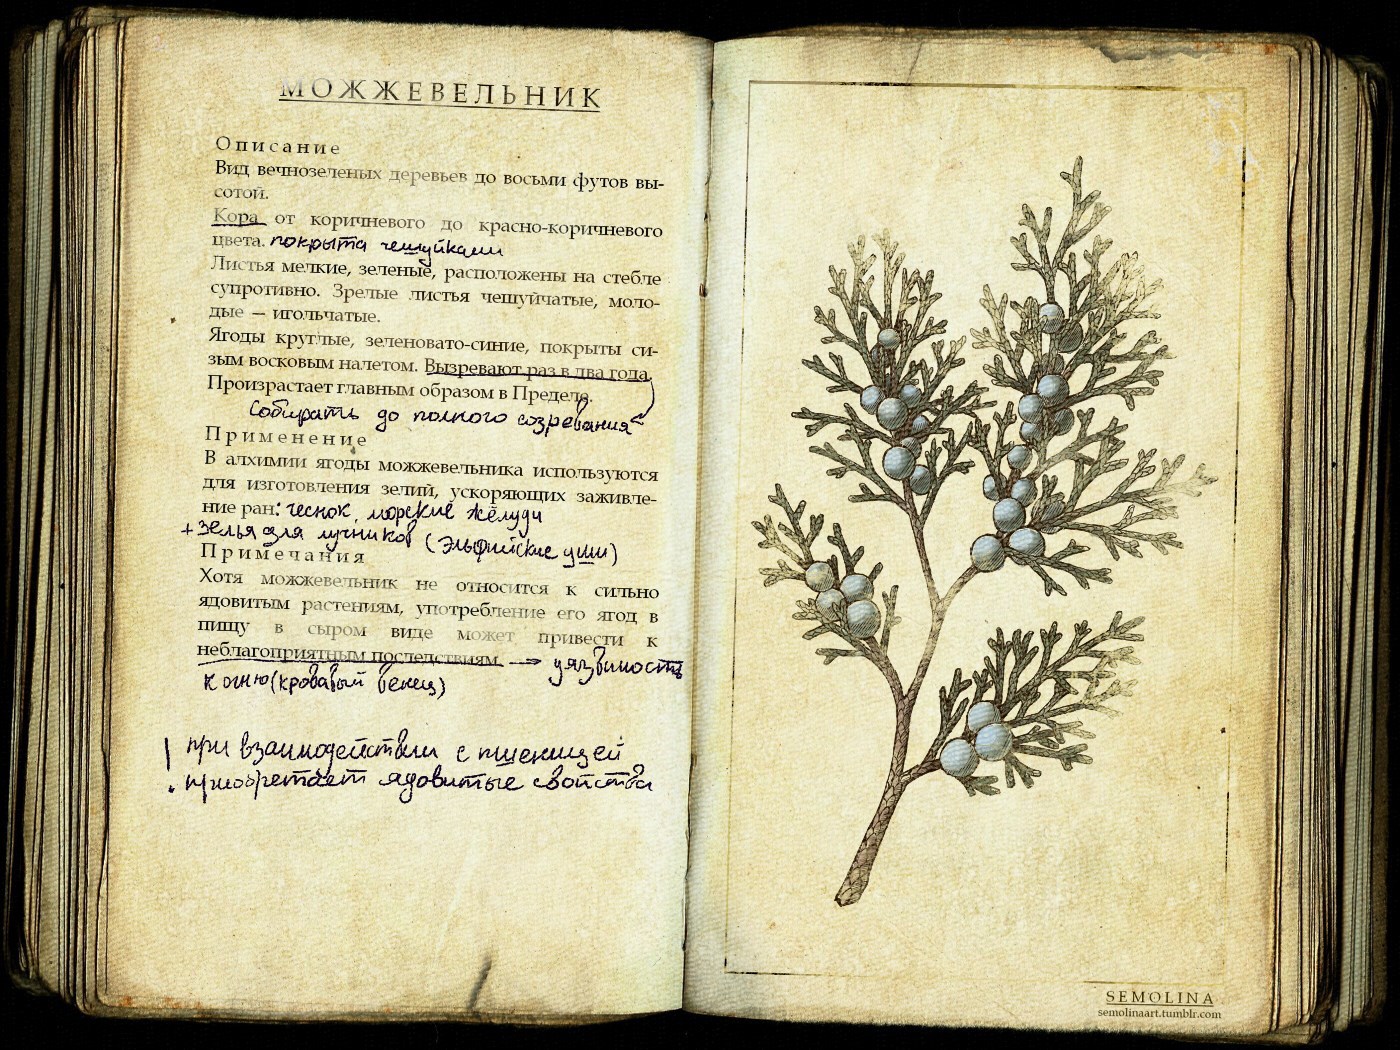 МОЖЖЕВЕЛЬНИК
Описание
Вид вечнозеленых деревьев до восьми футов вы-
сотой.
Кора от коричневого до красно-коричневого
цвета. покрыта чешуйками
Листья мелкие, зеленые, расположены на стебле
супротивно. Зрелые листья чешуйчатые, моло-
дые — игольчатые.
Ягоды круглые, зеленовато-синие, покрыты си-
зым восковым налетом. Вызревают раз в два года.
Произрастает главным образом в Пределе.
Собирать до полного созревания
Применение
В алхимии ягоды можжевельника используются
для изготовления зелий, ускоряющих заживле-
ние ран: чеснок, морские жёлуди
+ зелья для лучников (Эльфийские уши)
Примечания
Хотя можжевельник не относится к сильно
ядовитым растениям, употребление его ягод в
пищу в сыром виде может привести к
неблагоприятным последствиям. → уязвимость
к огню (кровавый венец)
! при взаимодействии с пшеницей
приобретает ядовитые свойства
SEMOLINA
semolinaart.tumblr.com